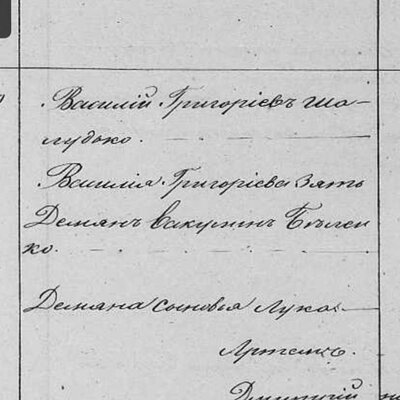 Василій Григорьевъ Ша-
лудько.
Василія Григорьева зять
Демянъ Вакулинъ Бѣлен
ко.
Демяна сыновья Лука
Артемъ.
Дмитрій